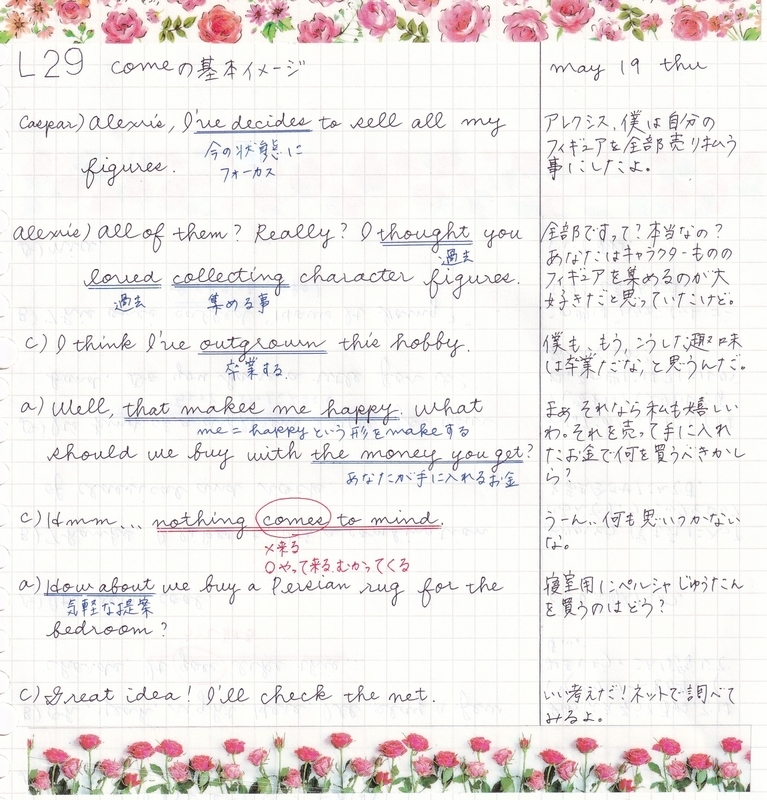 L29 comeの基本イメージ
may 19 thu
Caspar) Alexis, I've decides to sell all my
今の状態に
フォーカス
figures.
アレクシス、僕は自分の
フィギュアを全部売り払う
事にしたよ。
Alexis) All of them? Really? I thought you
過去
loved collecting character figures.
過去 集める事
全部ですって?本当なの?
あなたはキャラクターものの
フィギュアを集めるのが大
好きだと思っていたけど。
C) I think I've outgrown this hobby.
卒業する
僕も、もう、こうした趣味
は卒業だな、と思うんだ。
a) Well, that makes me happy. What
me = happyという形をmakeする
should we buy with the money you get?
あなたが手に入れるお金
まぁ それなら私も嬉しい
わ。それを売って手に入れ
たお金で何を買うべきかし
ら?
C) Hmm... nothing comes to mind.
×来る
○やって来る、むかってくる
うーん.. 何も思いつかない
な。
a) How about we buy a Persian rug for the
気軽な提案
bedroom?
寝室用にペルシャじゅうたん
を買うのはどう?
C) Great idea! I'll check the net.
いい考えだ!ネットで調べて
みるよ。